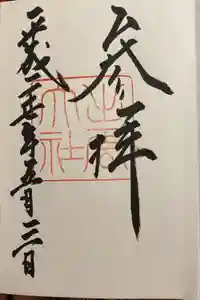 参拝
平成二十七年五月三日
出雲大社